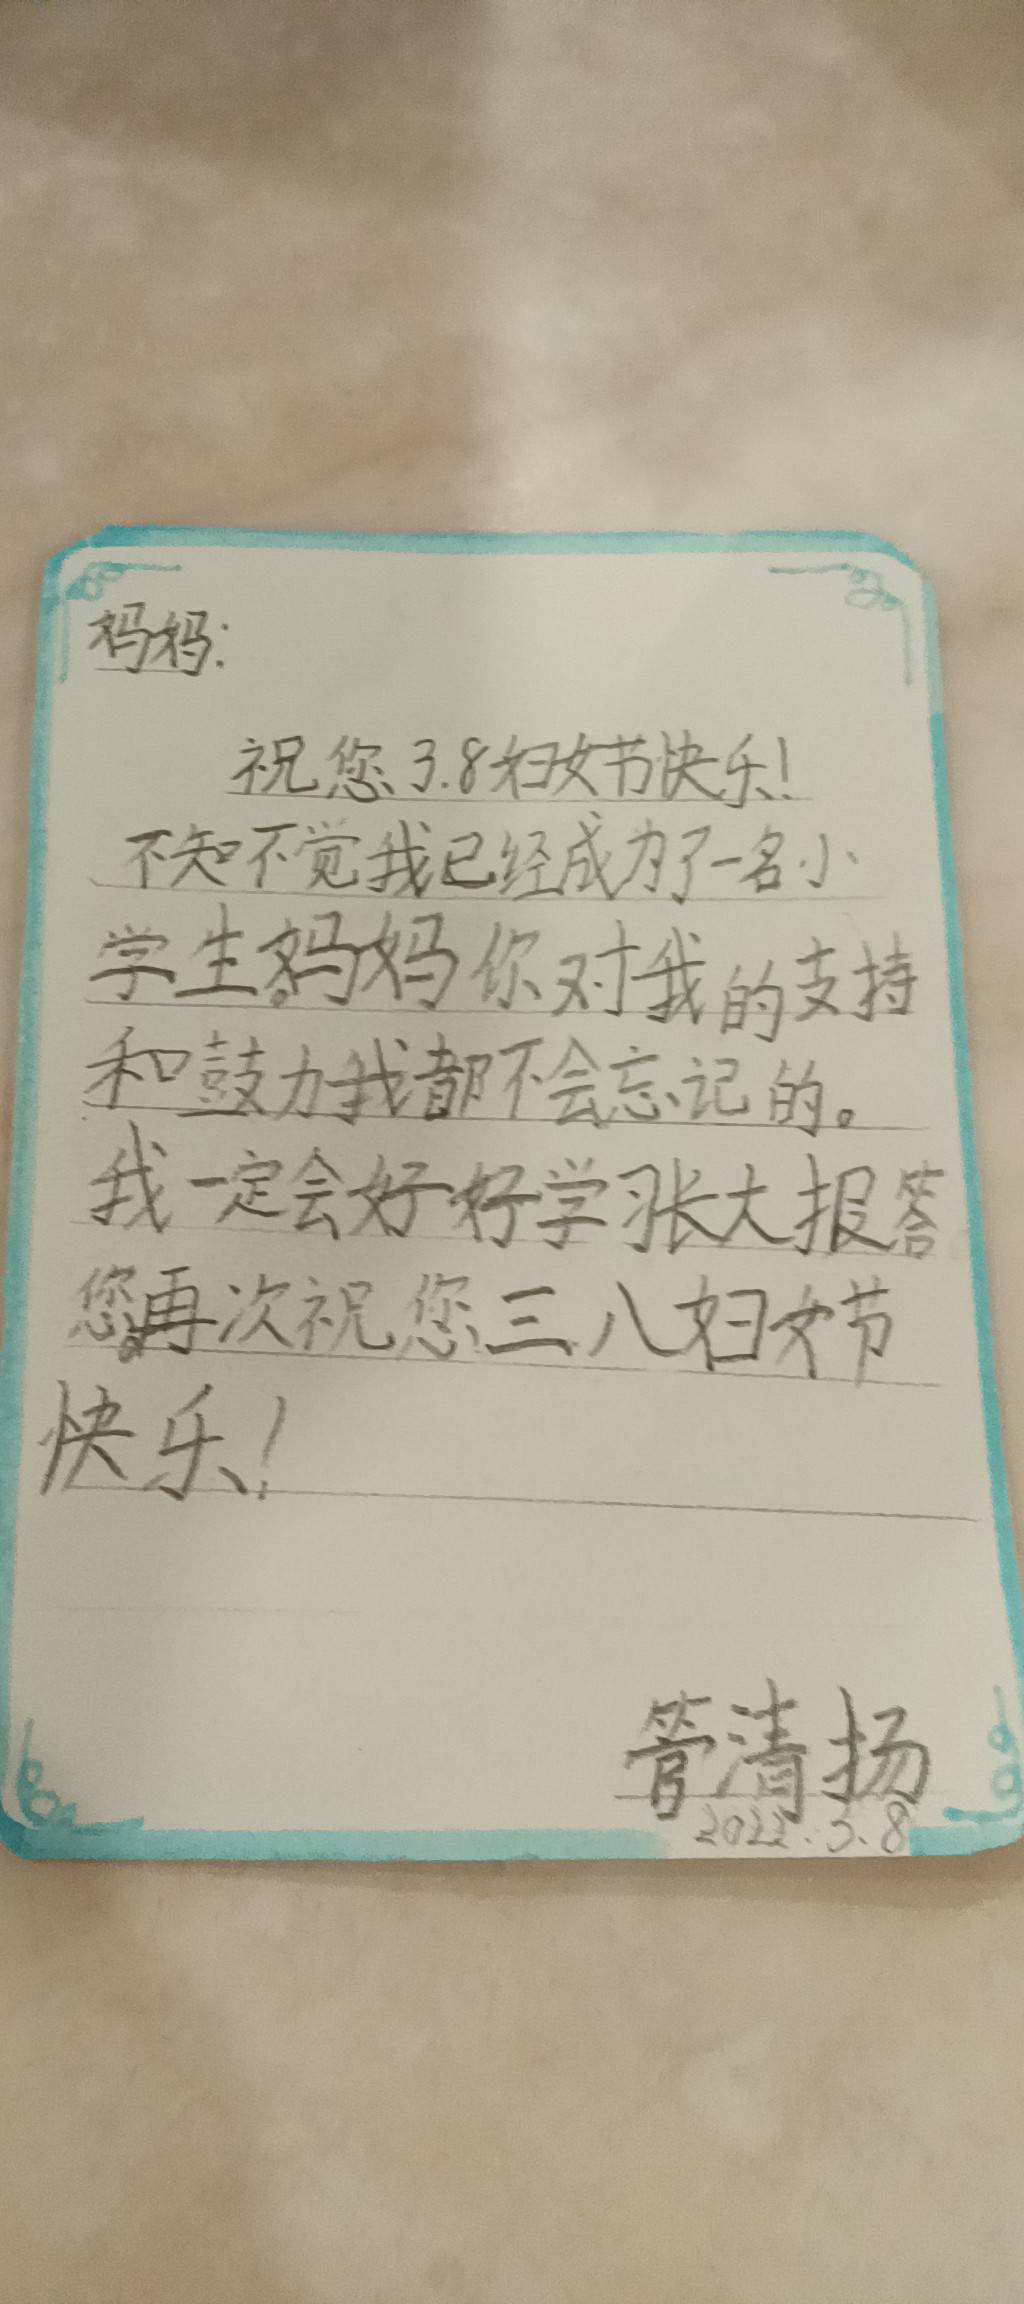 妈妈:
祝您3.8妇女节快乐!
不知不觉我已经成为了一名小
学生。妈妈你对我的支持
和鼓力我都不会忘记的。
我一定会好好学习张大报答
您。再次祝您三八妇女节
快乐!
管清扬
2022.3.8